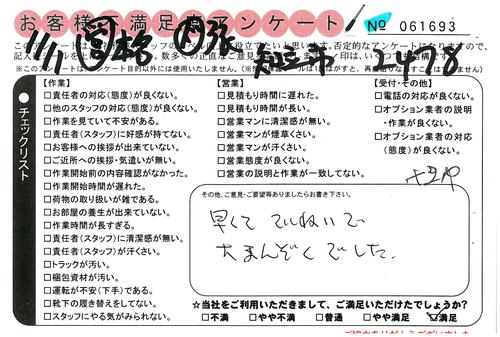 お客様不満足度アンケート
No 061693
3478
【作業】
□責任者の対応(態度)が良くない。
□他のスタッフの対応(態度)が良くない。
□作業を見ていて不安がある。
□責任者(スタッフ)に好感が持てない。
□お客様への挨拶が出来ていない。
□ご近所への挨拶・気遣いが無い。
□作業開始前の内容確認がなかった。
□作業開始時間が遅れた。
□荷物の取り扱いが雑である。
□お部屋の養生が出来ていない。
□作業時間が長すぎる。
□責任者(スタッフ)に清潔感が無い。
□責任者(スタッフ)が汗くさい。
□トラックが汚い。
□梱包資材が汚い。
□運転が不安(下手)である。
□靴下の履き替えをしてない。
□スタッフにやる気がみられない。
【営業】
□見積もり時間に遅れた。
□見積もり時間が長い。
□営業マンに清潔感が無い。
□営業マンが煙草くさい。
□営業マンが汗くさい。
□営業態度が良くない。
□営業の説明と作業が一致してない。
【受付・その他】
□電話の対応が良くない。
□オプション業者の説明
・作業が良くない。
□オプション業者の対応
(態度)が良くない。
●チェックリスト
その他、ご意見・ご要望等ありましたらお書き下さい。
早くて ていねいで
大まんぞくでした。
☆当社をご利用いただきまして、ご満足いただけたでしょうか?
□不満 □やや不満 □普通 □やや満足 ☑満足